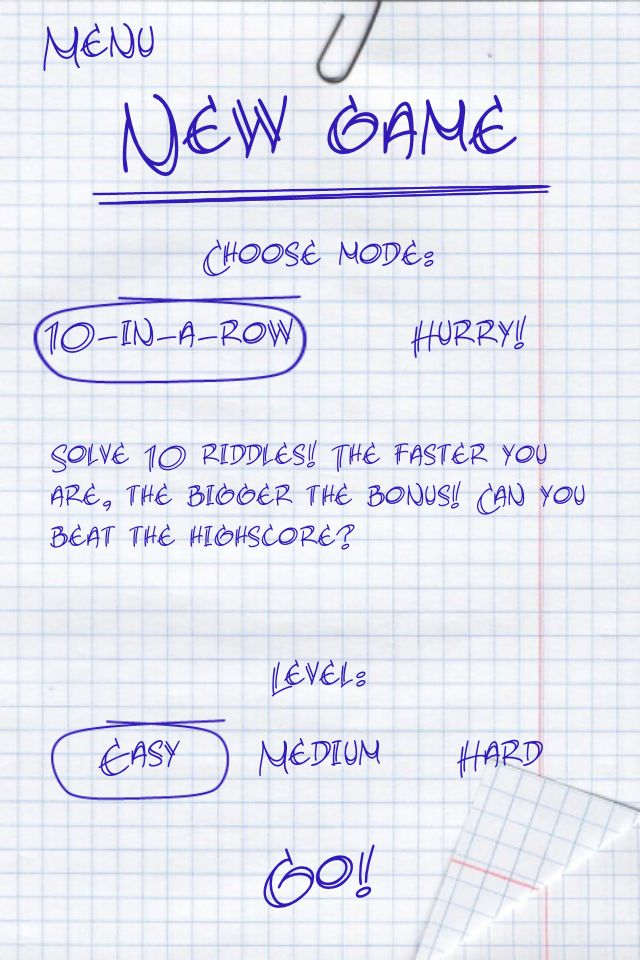 Menu
New Game
Choose mode:
10-in-a-row
Hurry!
Solve 10 riddles! The faster you
are, the bigger the bonus! Can you
beat the highscore?
Level:
Easy Medium Hard
Go!